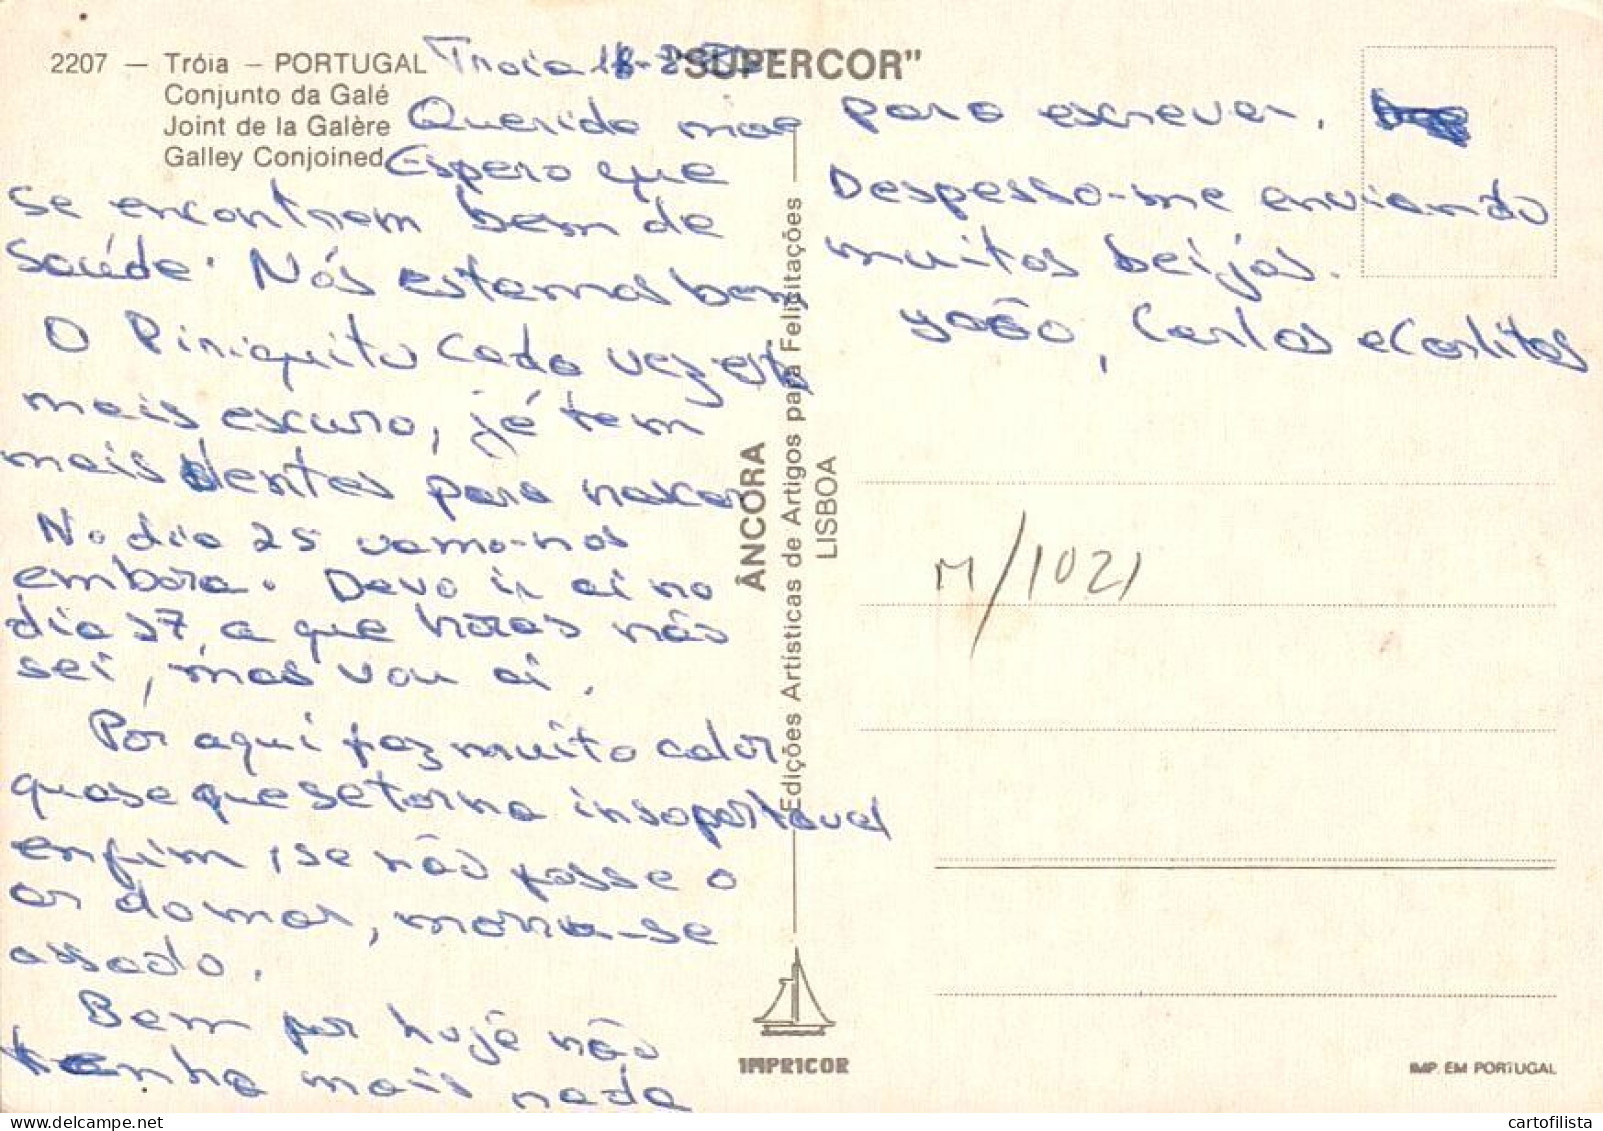 2207 — Tróia — PORTUGAL
Conjunto da Galé
Joint de la Galère
Galley Conjoined
"SUPERCOR"
Troia 18-8-
Querida mãe
Espero que
se encontrem bem de
saúde. Nós estamos bem
O Piriquito cada vez está
mais escuro, já tem
mais dentes para nascer
No dia 25 vamo-nos
embora. Devo ir aí no
dia 27, a que horas não
sei, mas vou aí.
Pór aqui faz muito calor
quase que se torna insoportavel
enfim, se não fosse o
ar do mar, morria-se
assado.
Bem por hoje não
tenho mais nada
para escrever.
Despesso-me enviando
muitos beijos.
João, Carlos e Carlitos
ÂNCORA
Edições Artísticas de Artigos para Felicitações
LISBOA
M/1021
IMPRICOR
IMP. EM PORTUGAL
cartofilista